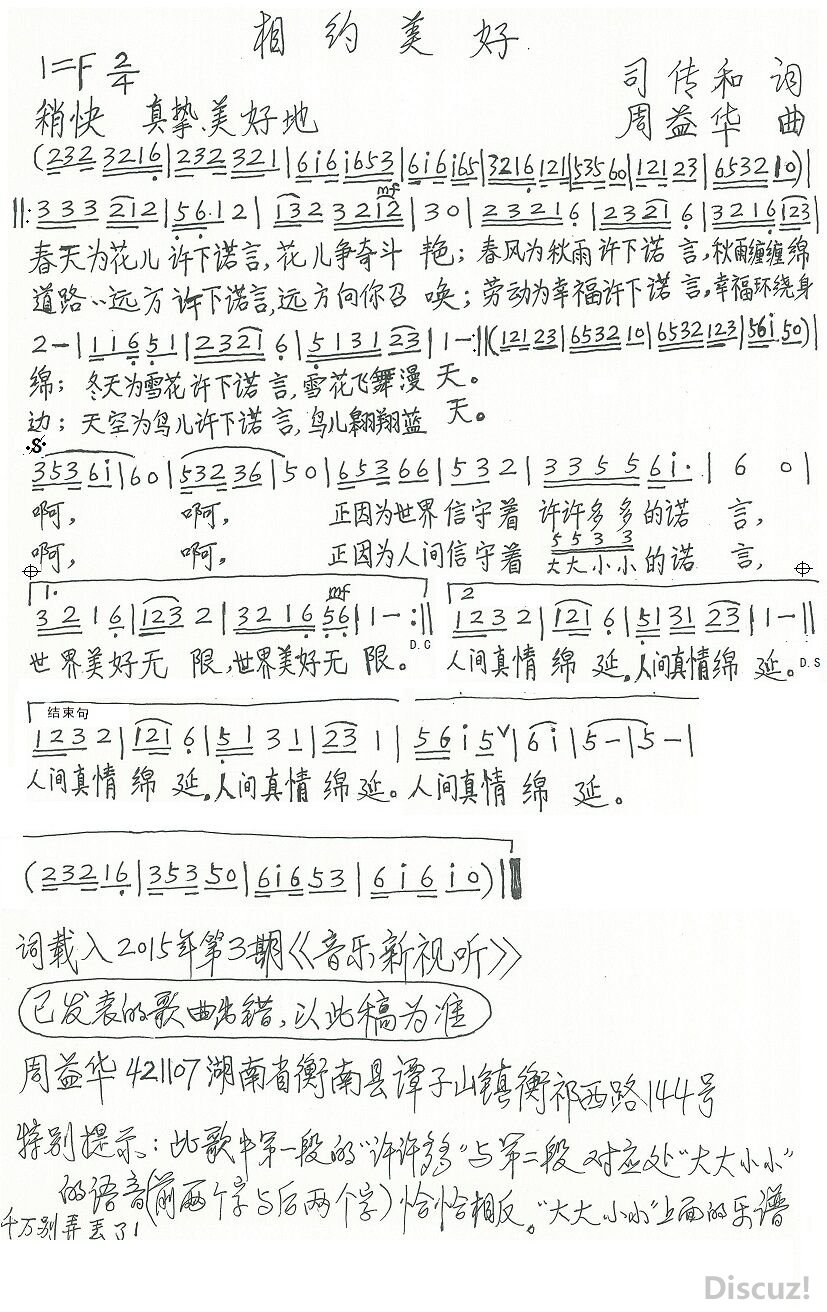 相约美好
1=F 2/4
司传和 词
稍快 真挚、美好地
周益华 曲
(232 3216|232 321|6i6 i653|6i6 i65|3216 121|535 60|121 23|6532 10)|
mf
||:333 212|56·12|132 3212|30|23216|2321 6|3216 123|
春天为花儿许下诺言,花儿争奇斗 艳;春风为秋雨许下诺 言,秋雨缠缠绵
道路为远方许下诺言,远方向你召 唤;劳动为幸福许下诺 言,幸福环绕身
2-|11651|2321 6|5131 23|1-:||(121 23|6532 10|6532 123|56i 50)|
绵;冬天为雪花许下诺 言,雪花飞舞漫 天。
边;天空为鸟儿许下诺 言,鸟儿翱翔蓝 天。
S
353 6i|60|532 36|50|653 66|532|3355 6i·|6 0|
啊, 啊, 正因为世界信守着 许许多多的诺 言,
5533
啊, 啊, 正因为人间信守着 大大小小的诺 言,
1. mf 2
32 16|123 2|3216 56|1-:|| D.C 1232|121 6|5131 23|1-|| D.S
世界美好无 限,世界美好无 限。 人间真情 绵 延,人间真情绵 延。
结束句
1232|121 6|51 31|23 1|56 i5∨|6i|5-|5-|
人间真情 绵 延,人间真情 绵延。人间真情 绵 延。
(232 16|353 50|6i6 53|6i6 i0)||
词载入2015年第3期《音乐新视听》
已发表的歌曲出错,以此稿为准
周益华 421107湖南省衡南县谭子山镇衡祁西路144号
特别提示:此歌中第一段的"许许多多"与第二段对应处"大大小小"
的语音(前两个字与后两个字)恰恰相反。"大大小小"上面的乐谱
千万别弄丢了!
Discuz!